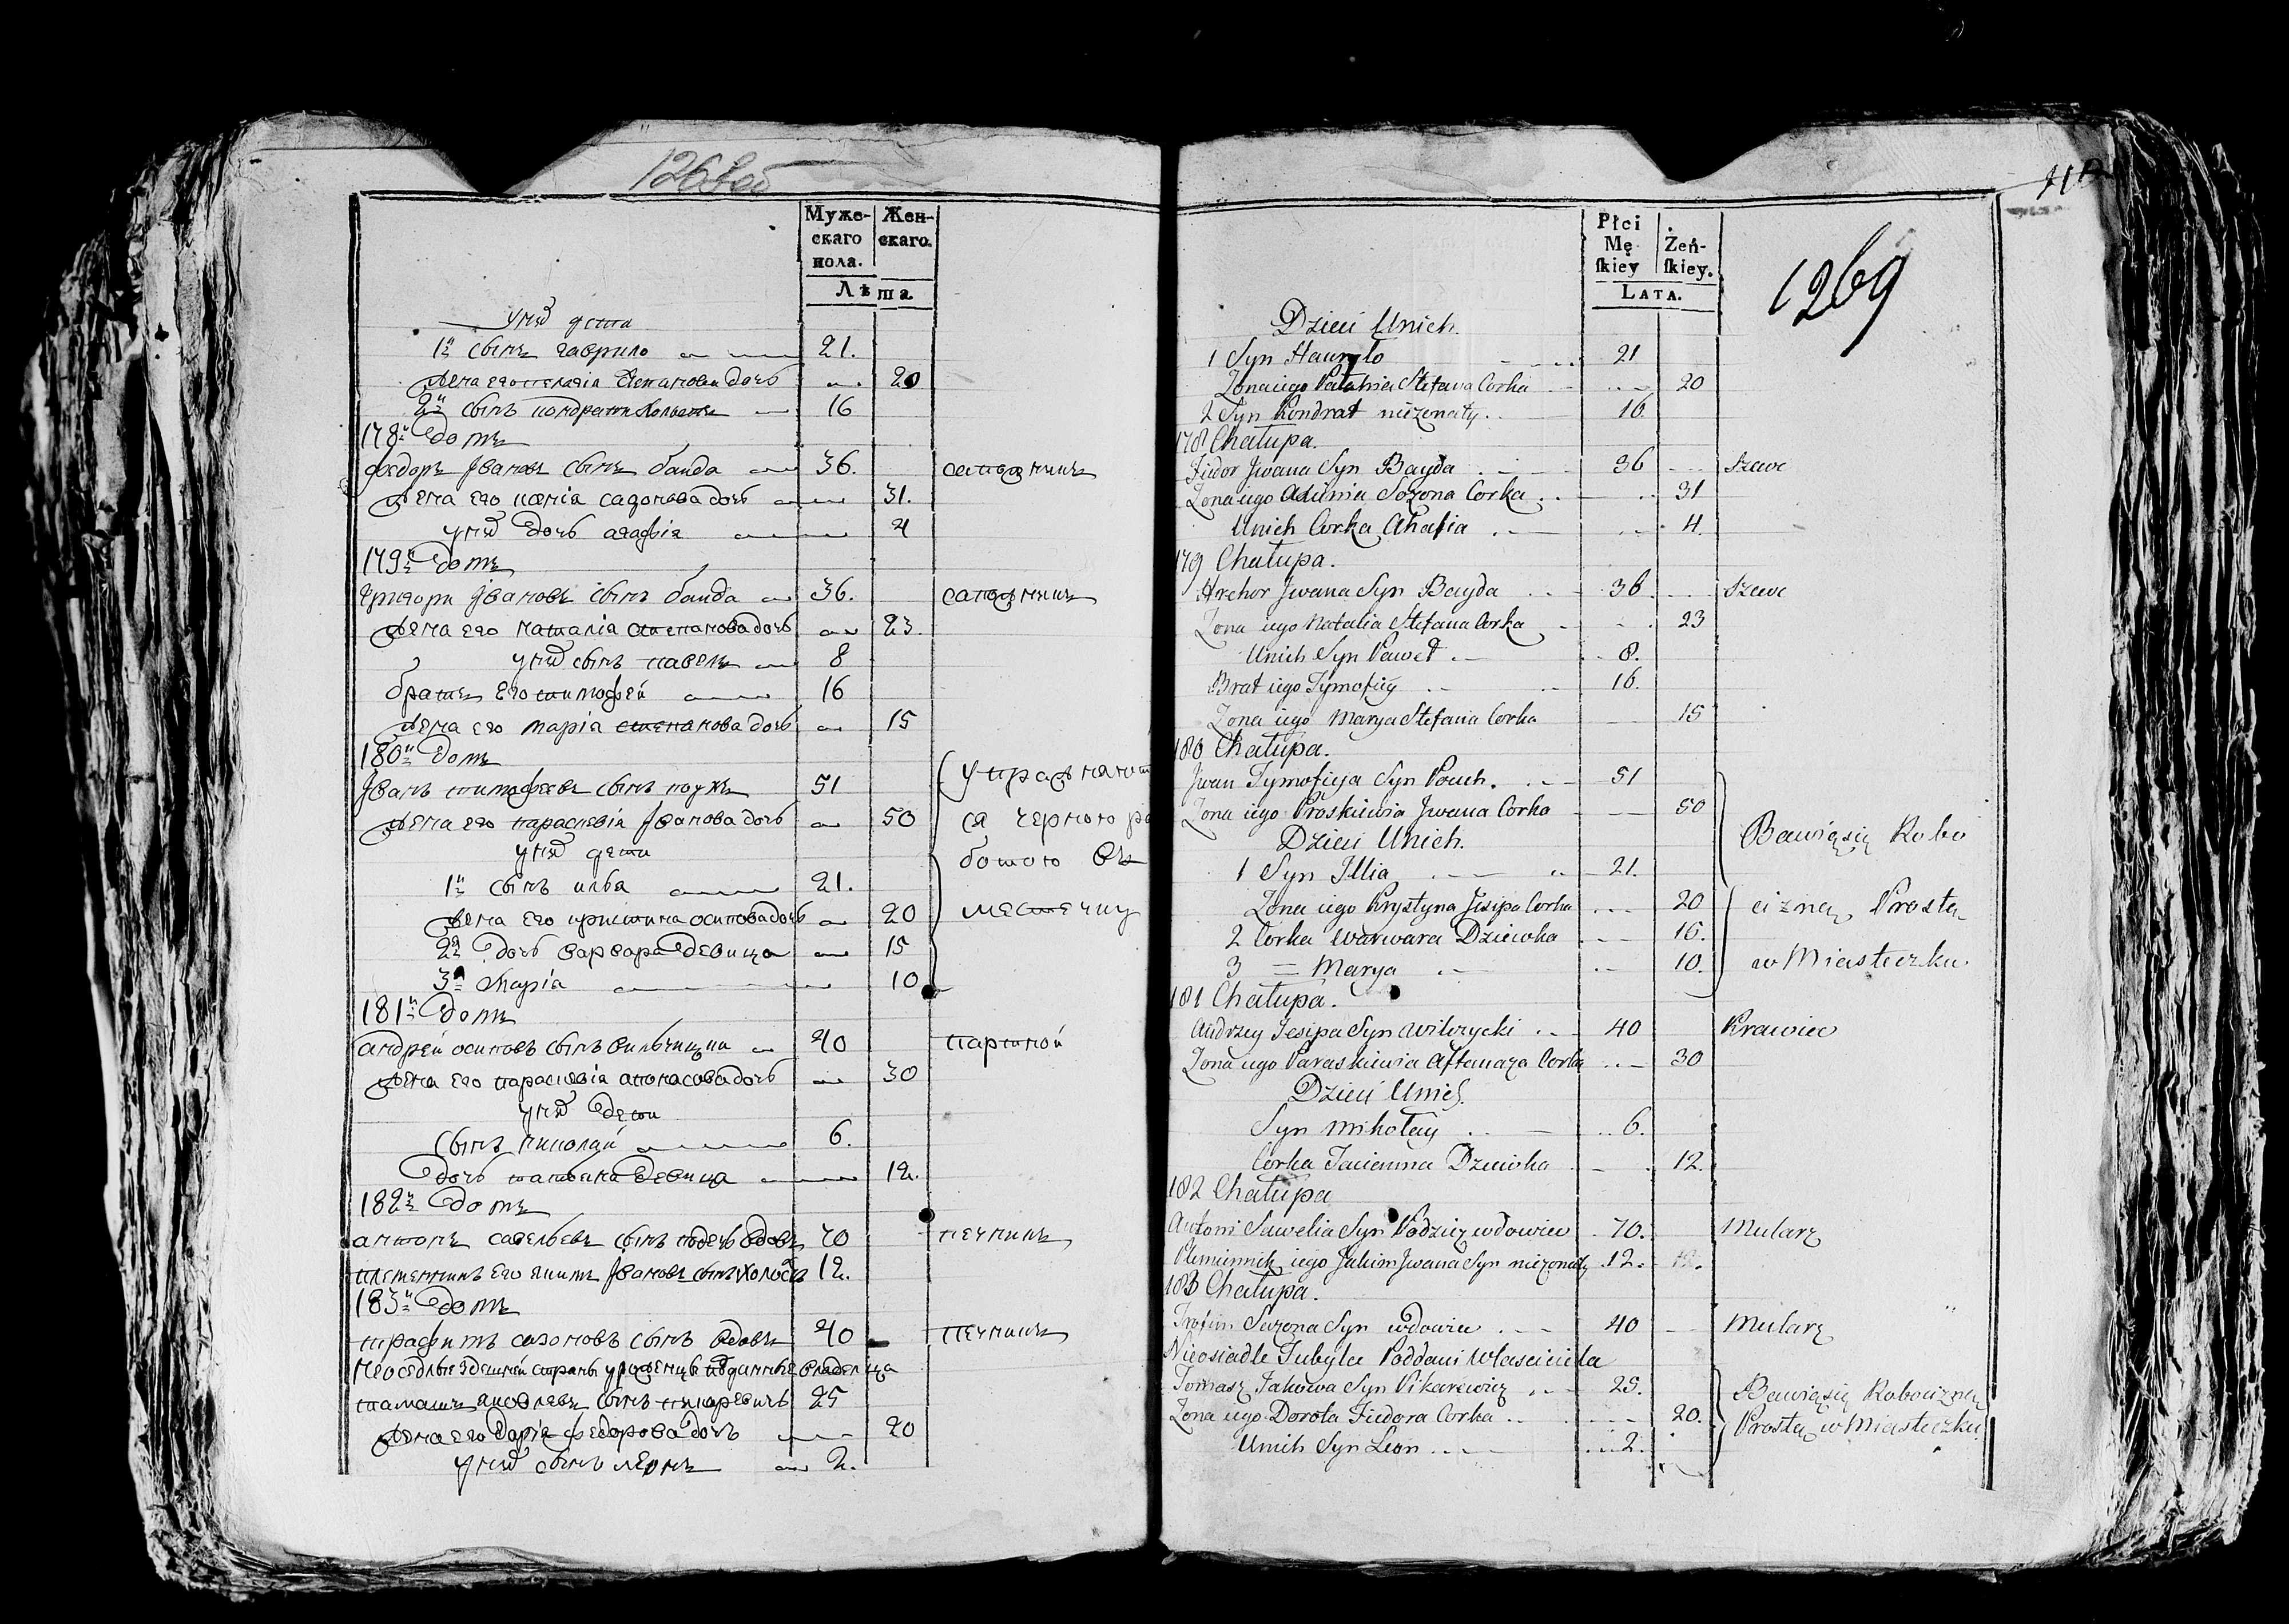 1268об
Муже-
скаго
пола.
Жен-
скаго.
Лѣта
у них дети
1й сынъ гаврило 21.
жена его пелагія Степанова дочь 20
2й сынъ кондратъ холостъ 16
178й домъ
федоръ Ивановъ сынъ баида 36. сапожникъ
жена его ксенія сазонова дочь 31.
у них дочь агафія 4
179й домъ
григори Ивановъ сынъ баида 36. сапожникъ
жена его наталія степанова дочь 23.
у них сынъ павелъ 8
братъ его тимофей 16
жена его марія степанова дочь 15
180й домъ
Иванъ тимофеевъ сынъ поухъ 51 упражняют
жена его параскевія Иванова дочь 50 ся черною ра
у них дети ботою въ
1й сынъ илья 21.
жена его кристина осипова дочь 20 местечку
2я дочь варвара девица 15
3я Марія 10
181й домъ
андрей осиповъ сынъ вильчицки 40 партной
жена его параскевія апонасова дочь 30
у них дети
сынъ николай 6.
дочь татьяна девица 12.
182й домъ
антонъ савельевъ сынъ вдовъ 70 печникъ
племенникъ его якимъ Ивановъ сынъ холостъ 12.
183й домъ
трафимъ сазоновъ сынъ вдовъ 40 печникъ
неоседлые здешней страны уроженцы подданные владельца
тамашъ яковлевъ сынъ пикаревичъ 25
жена его дарія федорова дочь 20
у них сынъ леонъ 2.
Płci
Mę
skiey
Zeń-
skiey.
LATA.
1269
Dzieci Unich.
1 Syn Hauryło 21
Zona iego Palahia Stefana Corka 20
2 Syn Kondrat nieżonaty 16.
178 Chałupa.
Fidor Jwana Syn Bayda 36 Szewc
Zona iego Axiinia Sozona Corka 31
Unich Corka Ahafia 4.
179 Chałupa.
Hrehor Jwana Syn Bayda 36. Szewc
Zona iego Natalia Stefana Corka 23
Unich Syn Paweł 8.
Brat iego Tymofiey 16.
Zona iego Marya Stefana Corka 15
180 Chałupa.
Jwan Tymofieja Syn Pouch. 51
Zona iego Proskiewia Jwana Corka 50
Dzieci Unich. Bawią się Robo
1 Syn Illia 21.
Zona iego Krystyna Jesipa Corka 20 cizną, Prostą
2 Corka Warwara Dziewka 15.
3 = Marya 10. w Miasteczku.
181 Chałupa.
Andrzey Jesipa Syn Wilczycki 40 Krawiec
Zona iego Paraskiewia Aftanaza Corka 30
Dzieci Unich.
Syn Mikołay 6.
Corka Tacianna Dziewka 12.
182 Chałupa
Antoni Sawelia Syn wdowiec 70. Mularz
Plemiennik iego Jakim Jwana Syn nieżonaty 12.
183 Chałupa.
Trofim Sazona Syn wdowiec 40 Mularz
Nieosiadłe Tubylce Poddani Własciciela
Tomasz Jakowa Syn Pikarewicz 25. Bawią się Robocizną
Zona iego Dorota Fiedora Corka 20. Prostą w Miasteczku.
Unich Syn Leon 2.